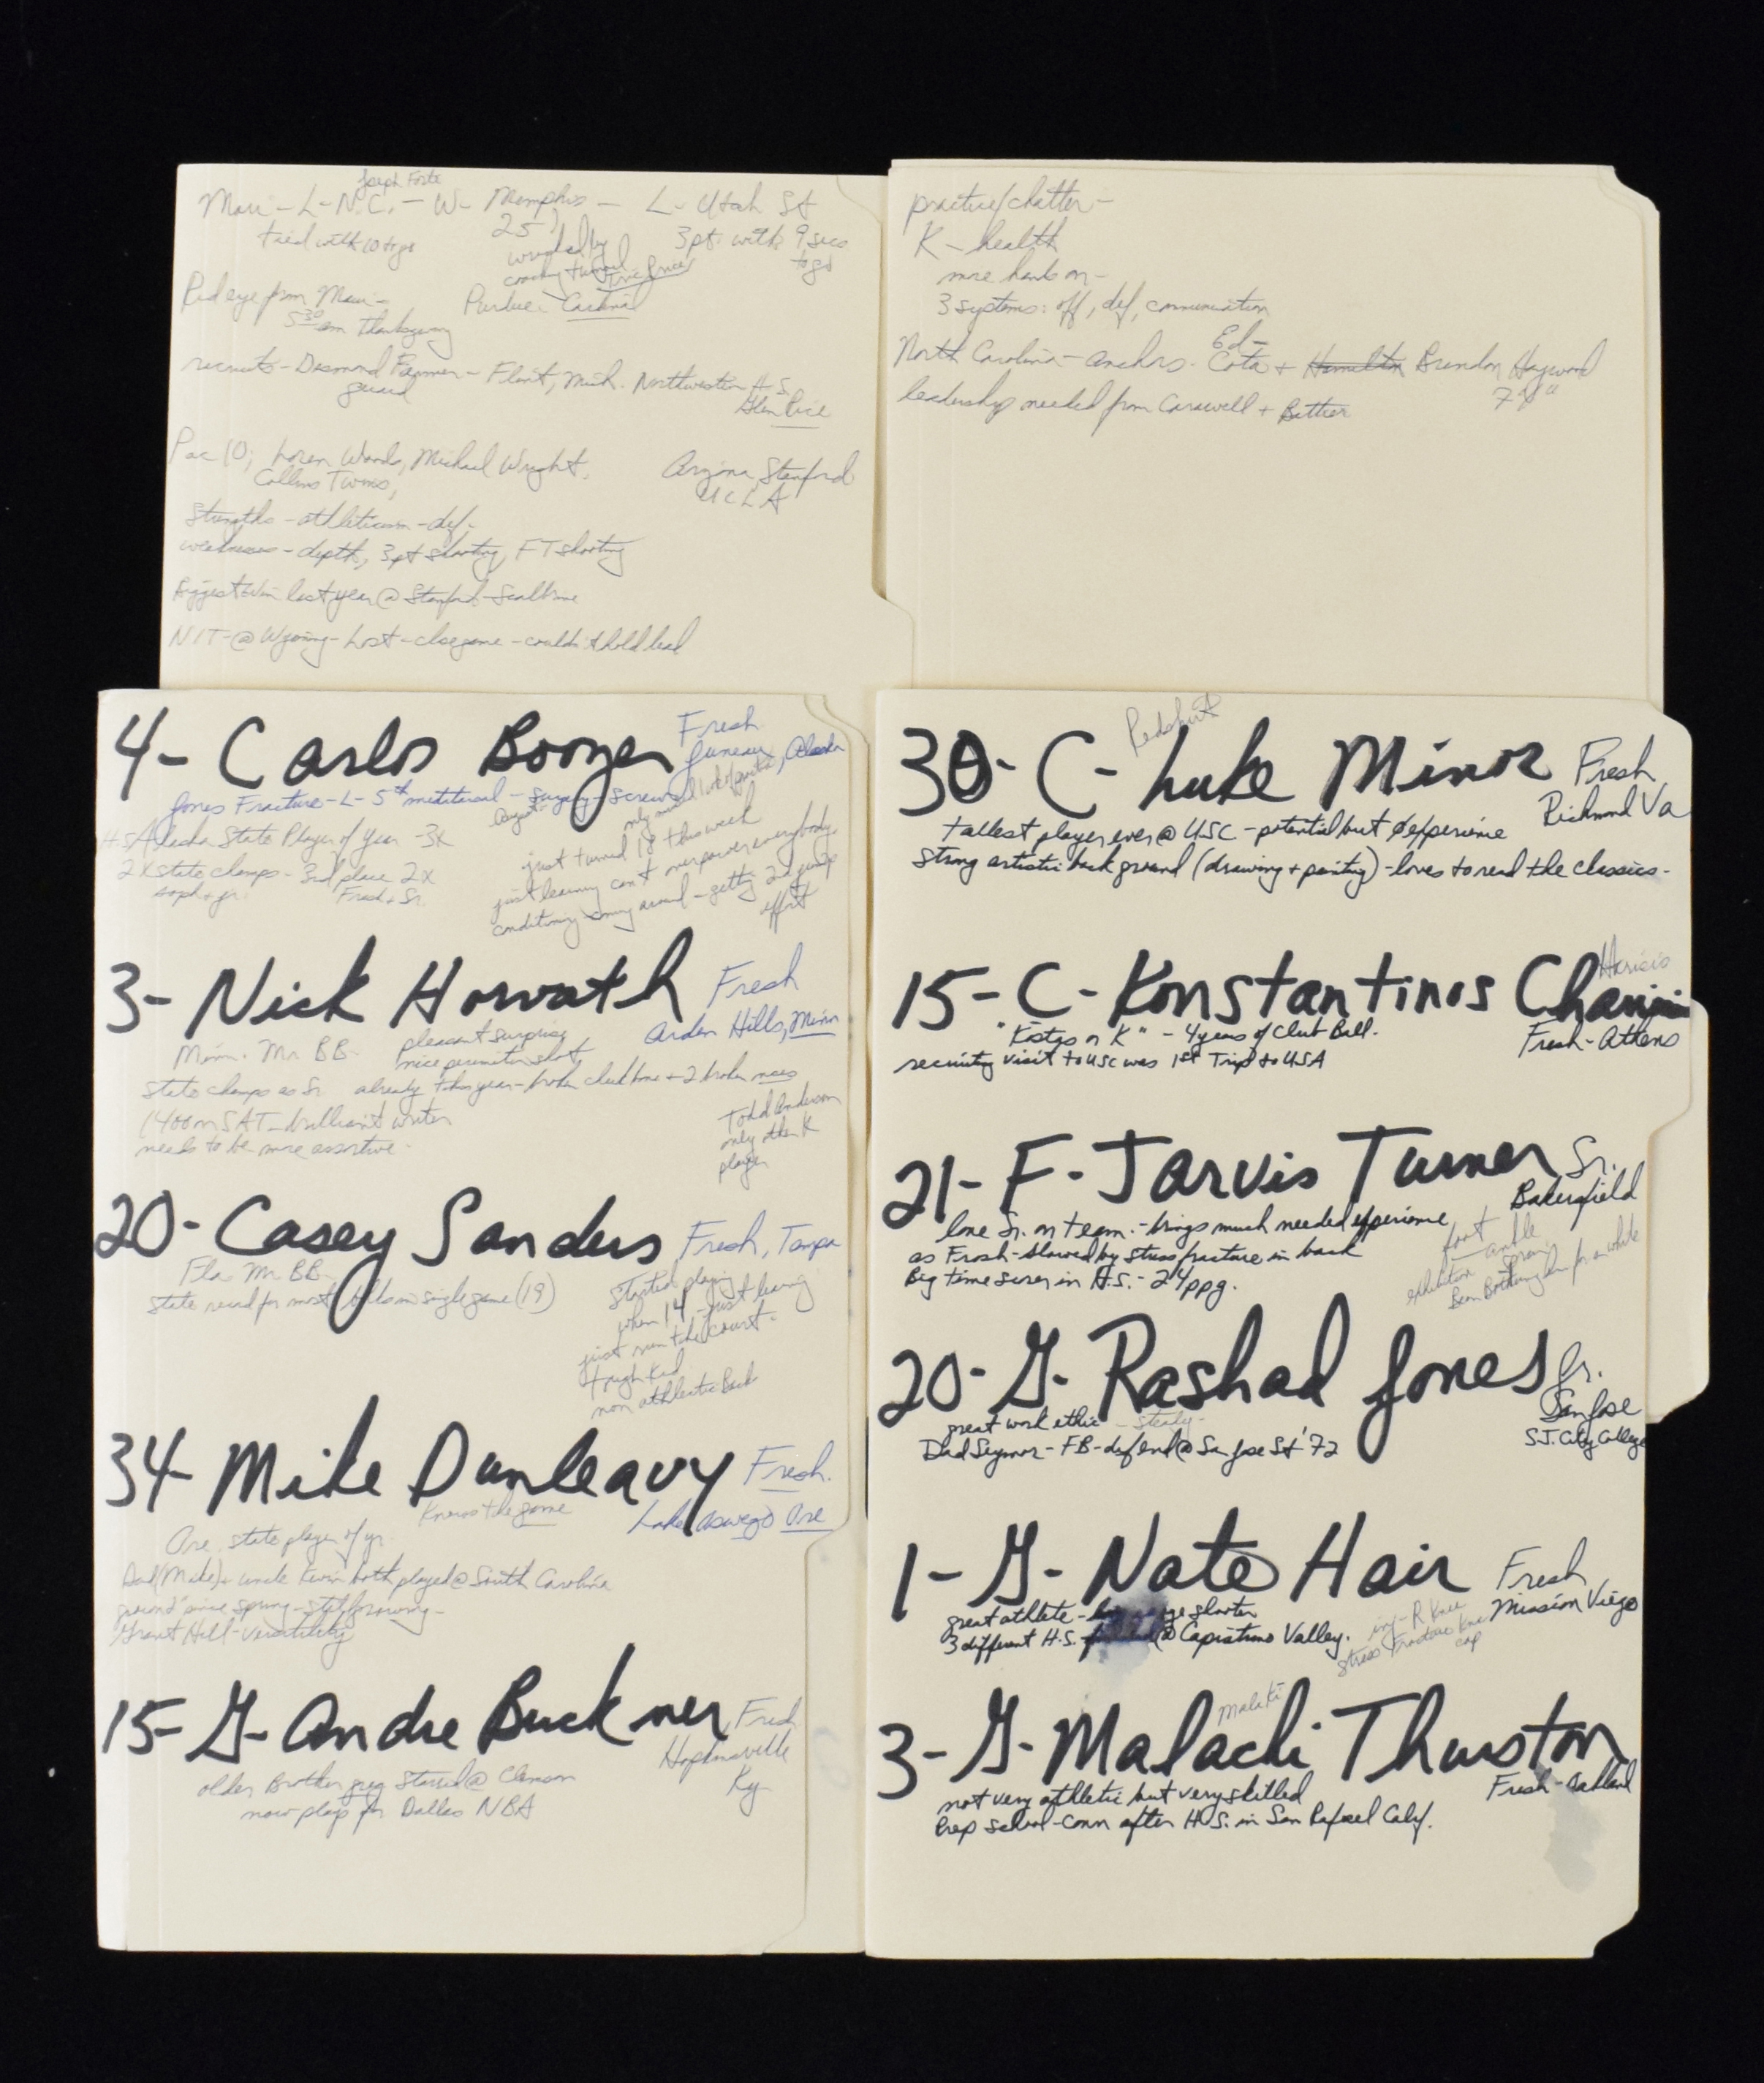 Joseph Forte
Maui - L - N.C. - W - Memphis - L - Utah St
tied with 10 to go
25
3pt. with 9 secs
to go
coming
Eric Price
Red eye from Maui -
Purdue - Cardinal
5:30 am Thanksgiving
recruits - Desmond Farmer - Flint, Mich. Northwestern H.S.
guard
Glen Rice
Pac 10; Loren Woods, Michael Wright,
Arizona, Stanford
Collins Twins,
UCLA
Strengths - athleticism - def -
weaknesses - depth, 3pt shooting, FT shooting
Biggest win last year @ Stanford - Scalbrine
NIT - @ Wyoming - Lost - close game - couldn't hold lead
practice/chatter -
K - health
more hands on -
3 systems: off, def, communication
Ed -
North Carolina - anchors - Cota + Hamilton Brendan Haywood
7'0"
leadership needed from Carawell + Battier
4- Carlos Boozer
Fresh
Juneau, Alaska
Jones Fracture - L - 5th metatarsal - surgery - screws
August
H.S. Alaska State Player of Year - 3x
2x state champs - 3rd place 2x
soph + jr.
Fresh + Sr.
just turned 18 this week
just learning can't overpower everybody
conditioning coming around - getting 2nd jump
effort
3- Nick Horvath
Fresh
Arden Hills, Minn
Minn. Mr BB
pleasant surprise
nice perimeter shot
State champs as Sr.
already this year - broken cheekbone + 2 broken noses
1400 on SAT - brilliant writer
needs to be more assertive -
Todd Anderson
only other K
player
20- Casey Sanders
Fresh, Tampa
Fla Mr BB
State record for most blks in single game (19)
Started playing
when 14 - just learning
just run the court -
tough kid
non athletic Back
34- Mike Dunleavy
Fresh.
Lake Oswego Ore
Knows the game
Ore. state player of yr.
Dad (Mike) + uncle Kevin both played @ South Carolina
since spring - still growing -
Grant Hill - versatility
15- G- Andre Buckner
Fresh
Hopkinsville
Ky
older Brother Greg Starred @ Clemson
now plays for Dallas NBA
Redshirt
30- C- Luke Minor
Fresh
Richmond Va
tallest player ever @ USC - potential but 0 experience
strong artistic back ground (drawing + painting) - loves to read the classics -
Harisis
15- C- Konstantinos Charis
"Kostas or K" - 4 years of Club Ball.
Fresh - Athens
recruiting visit to USC was 1st Trip to USA
21- F- Jarvis Turner
Sr.
Bakersfield
lone Sr. on team. - brings much needed experience
as Frosh - slowed by stress fracture in back
Big time scorer in H.S. - 24ppg.
foot
- ankle
exhibition sprain
Been Bothering him for a while
20- G- Rashad Jones
Jr.
San Jose
S.J. City College
great work ethic - steady -
Dad Seymor - FB - def end @ San Jose St '72
1- G- Nate Hair
Fresh
Mission Viejo
great athlete - shooter
3 different H.S. @ Capistrano Valley.
inj - R Knee
stress Fracture Knee
cap
Malaki
3- G- Malachi Thurston
Fresh - Oakland
not very athletic but very skilled
Prep school - Conn after H.S. in San Rafael Calif.